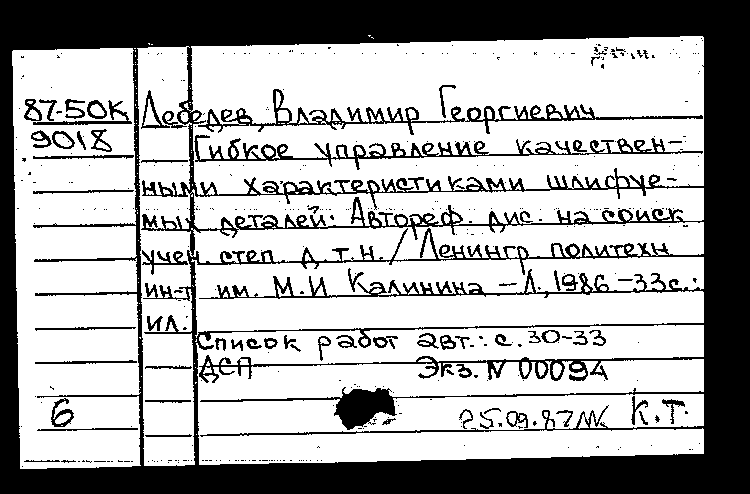 87-50К Лебедев, Владимир Георгиевич
9018
Гибкое управление качествен-
ными характеристиками шлифуе-
мых деталей: Автореф. дис. на соиск
учен. степ. д.т.н. / Ленингр. политехн
ин-т им. М.И Калинина – Л., 1986 – 33с.:
ил.
Список работ авт.: с. 30-33
ДСП Экз. N 00094
6 25.09.87 К.Т.